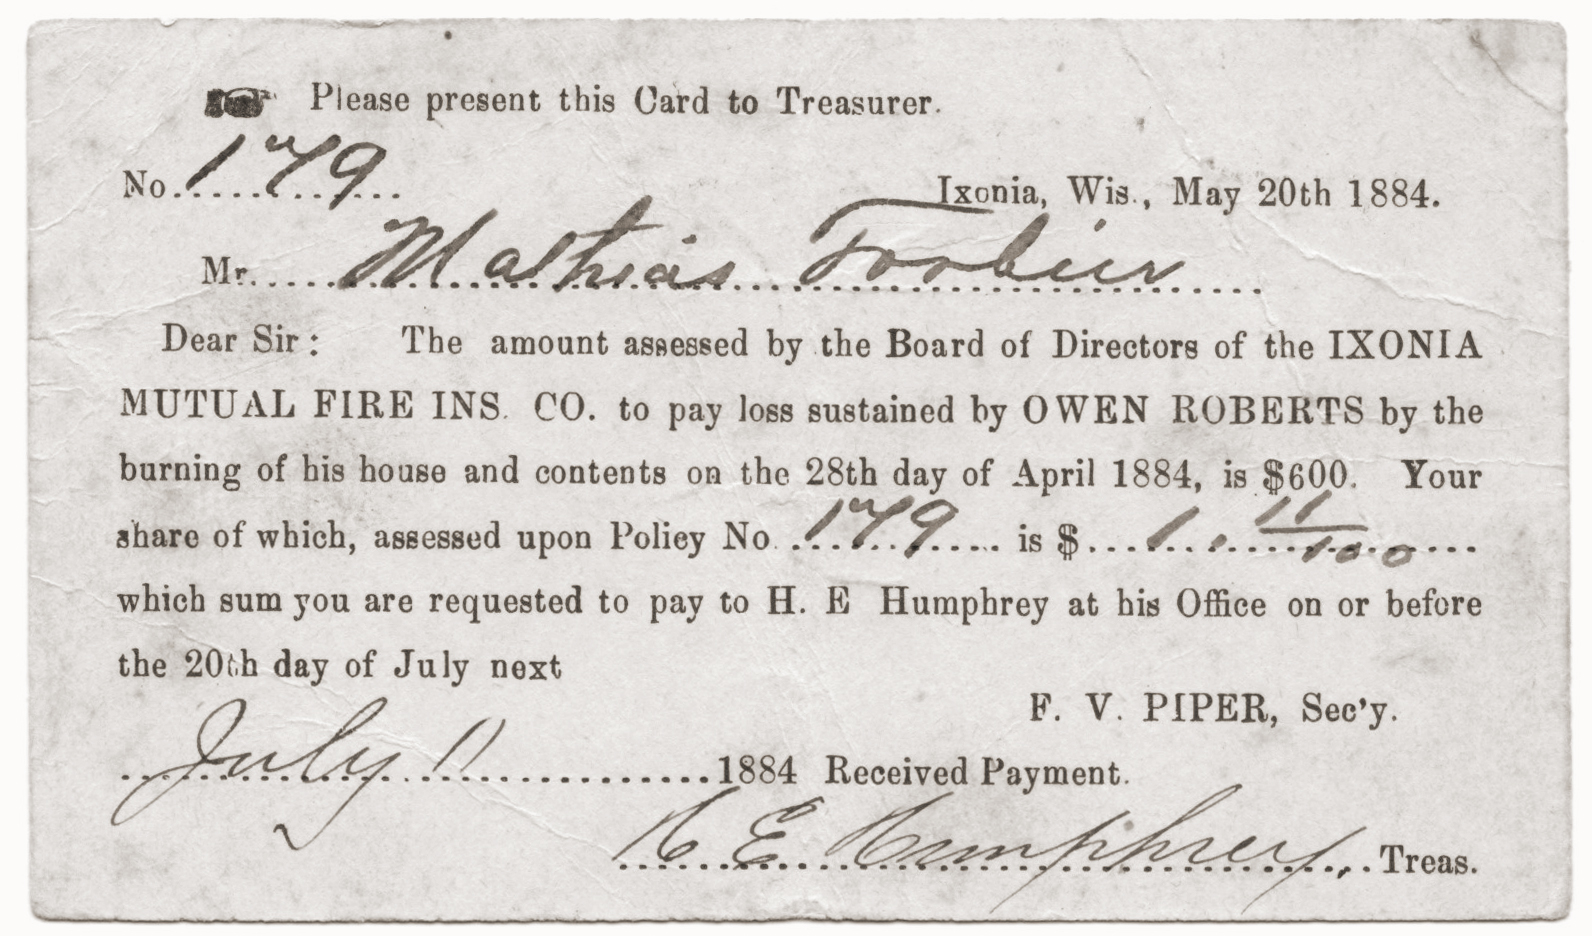 Please present this Card to Treasurer.
No. 179
Ixonia, Wis., May 20th 1884.
Mr. Mathias
Dear Sir: The amount assessed by the Board of Directors of the IXONIA
MUTUAL FIRE INS. CO. to pay loss sustained by OWEN ROBERTS by the
burning of his house and contents on the 28th day of April 1884, is $600. Your
share of which, assessed upon Policy No 179 is $ 1. 11/100
which sum you are requested to pay to H. E Humphrey at his Office on or before
the 20th day of July next
F. V. PIPER, Sec'y.
July 11 1884 Received Payment.
H E Humphrey, Treas.